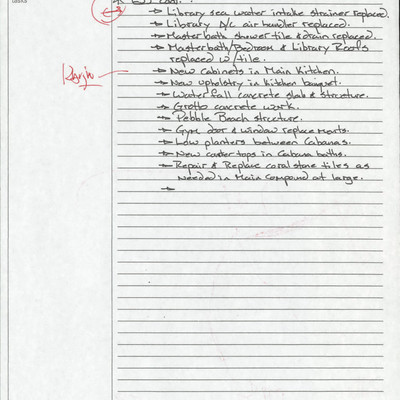 Tasks
→ Library sea water intake strainer replaced.
→ Library A/C air handler replaced.
→ Master bath shower tile & drain replaced.
→ Master bath/Bedroom & Library Roofs
replaced w/ tile.
→ New cabinets in Main Kitchen.
→ New upholstry in Kitchen banquet.
→ Waterfall concrete slab & structure.
→ Grotto concrete work.
→ Pebble Beach structure.
→ Gym door & window replacements.
→ Low planters between Cabanas.
→ New counter tops in Cabana baths.
→ Repair & Replace coral stone tiles as
needed in Main Compound at large.
→